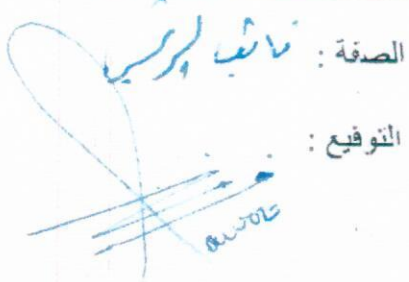 الصفة : نائب الرئيس
التوقيع :